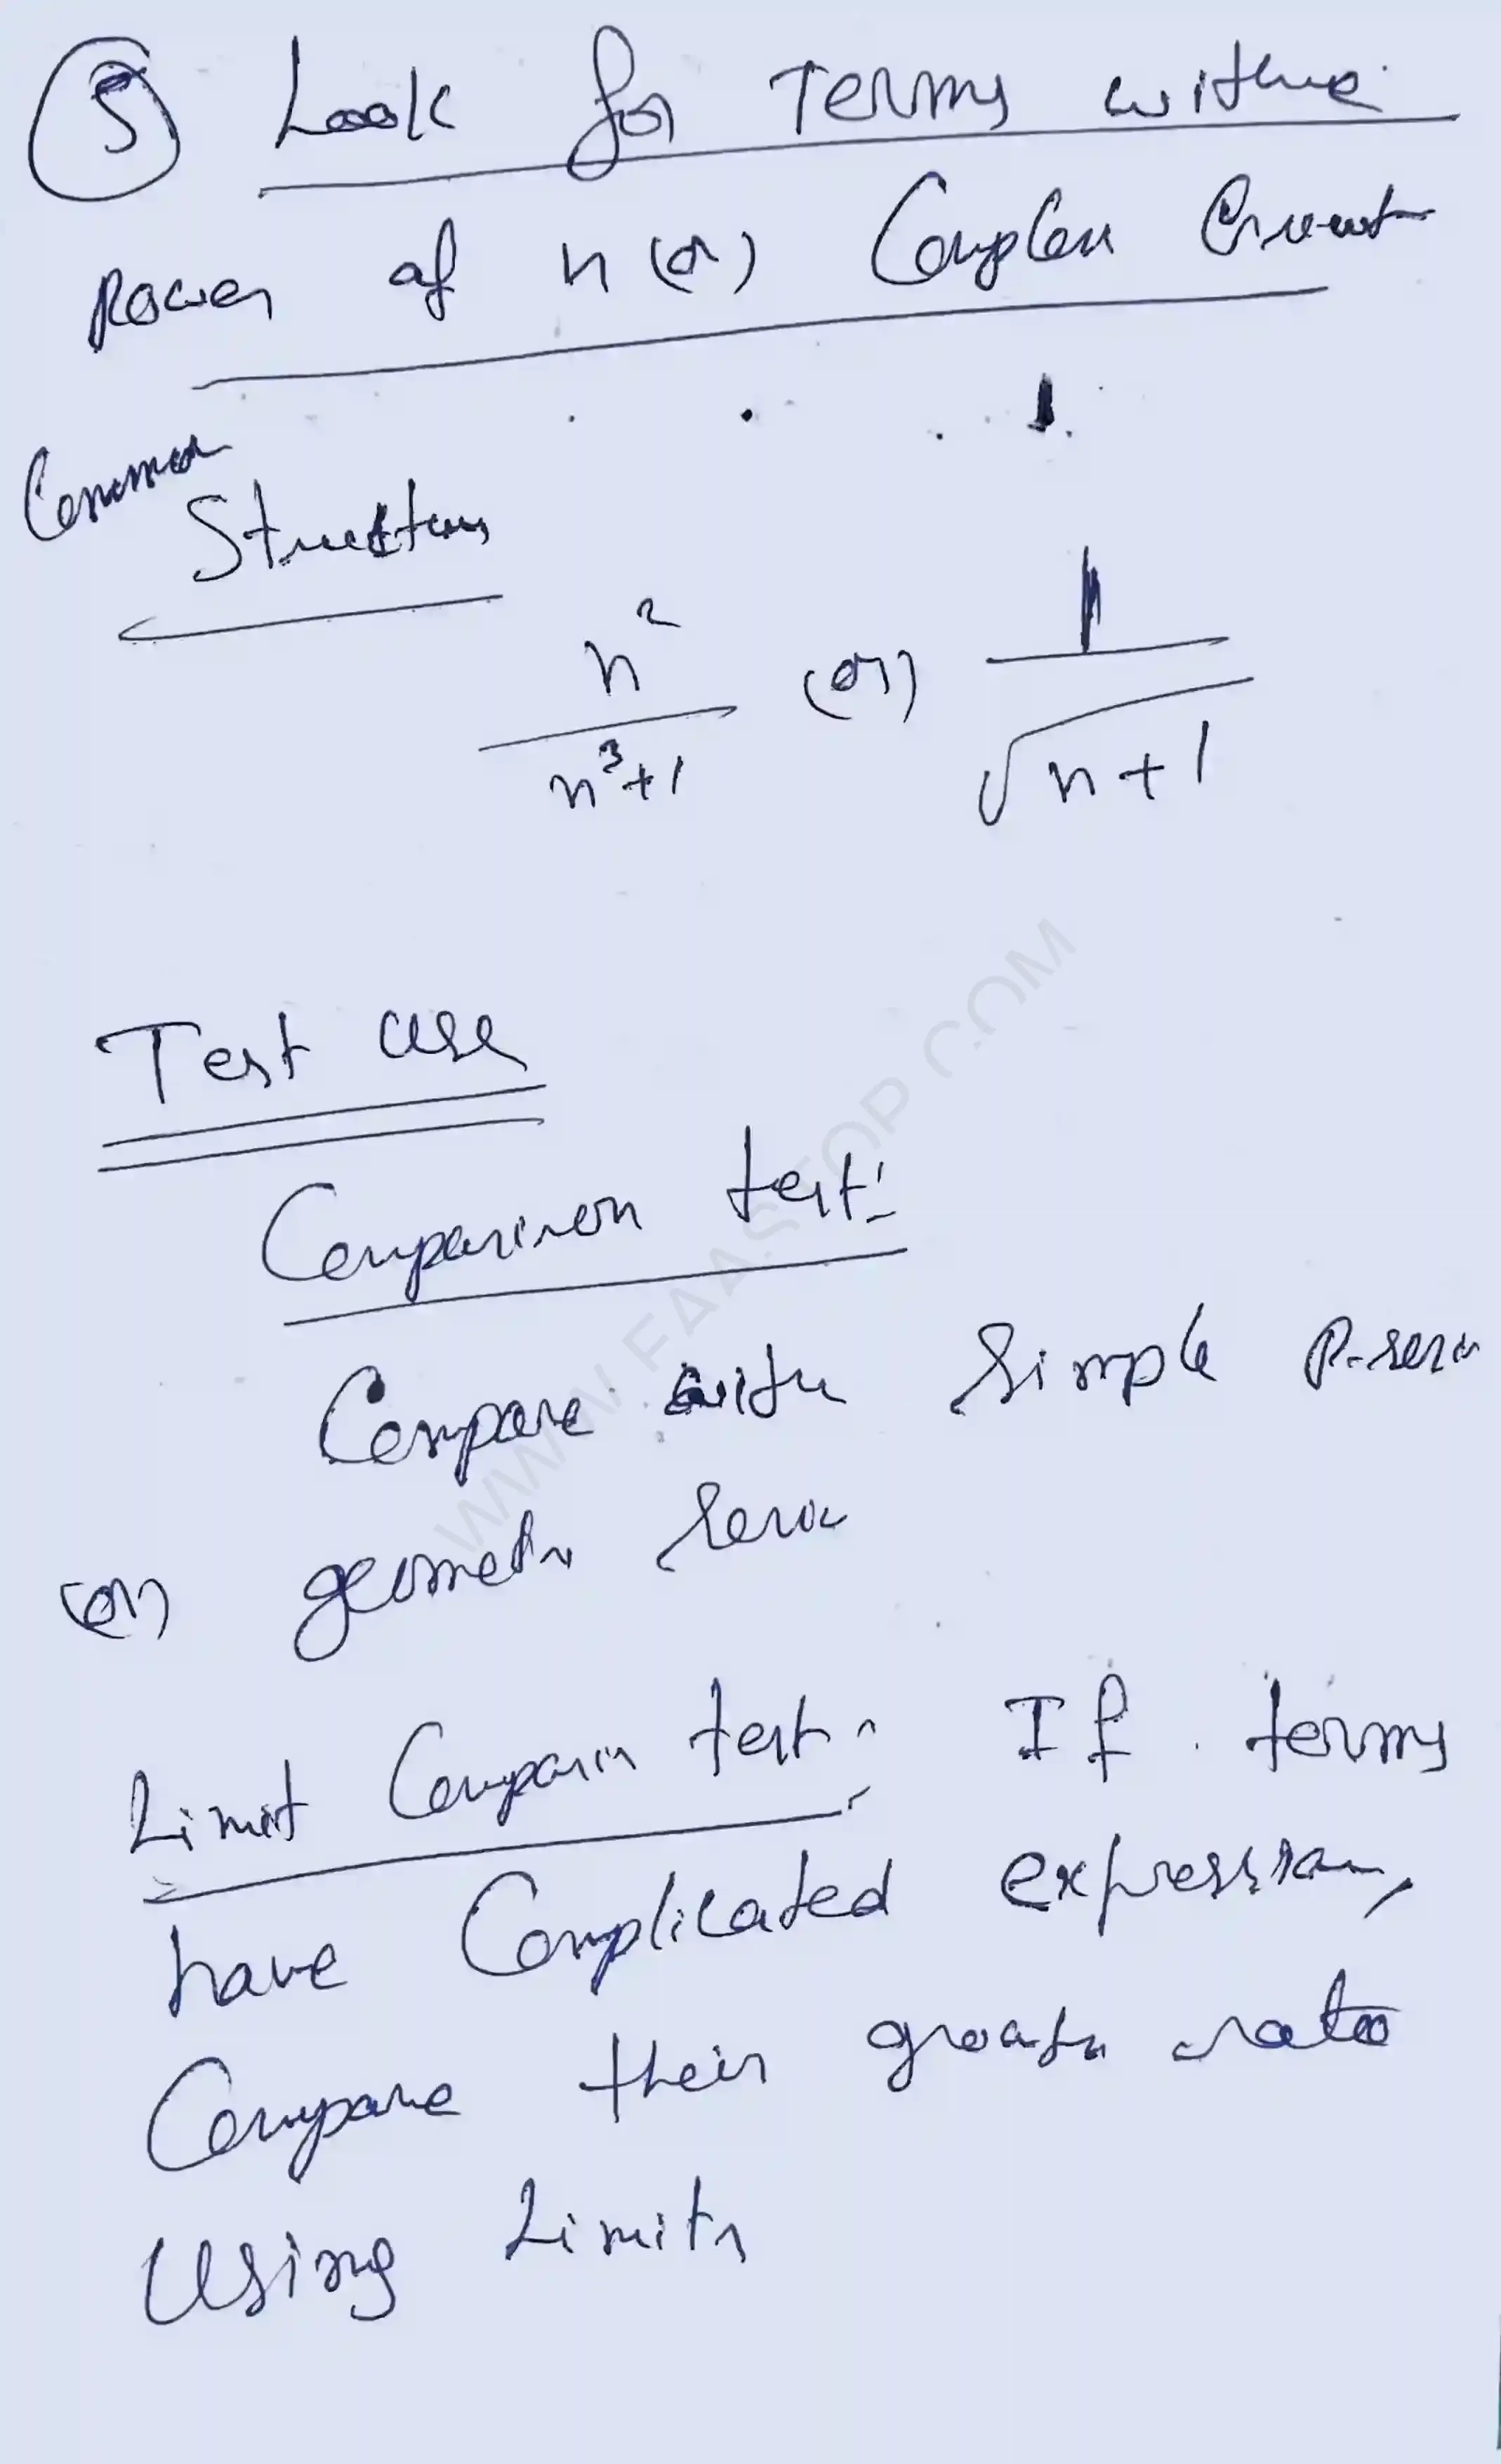 5 Look for Terms with
power of n (or) Complex Growth
Common
Structure
n²/(n³+1) (or) 1/√(n+1)
Test use
Comparison test:
Compare with Simple P-series
(or) geometric series
Limit Comparison test: If terms
have Complicated expression,
Compare their growth rates
Using Limits
WWW.FAASTOP.COM